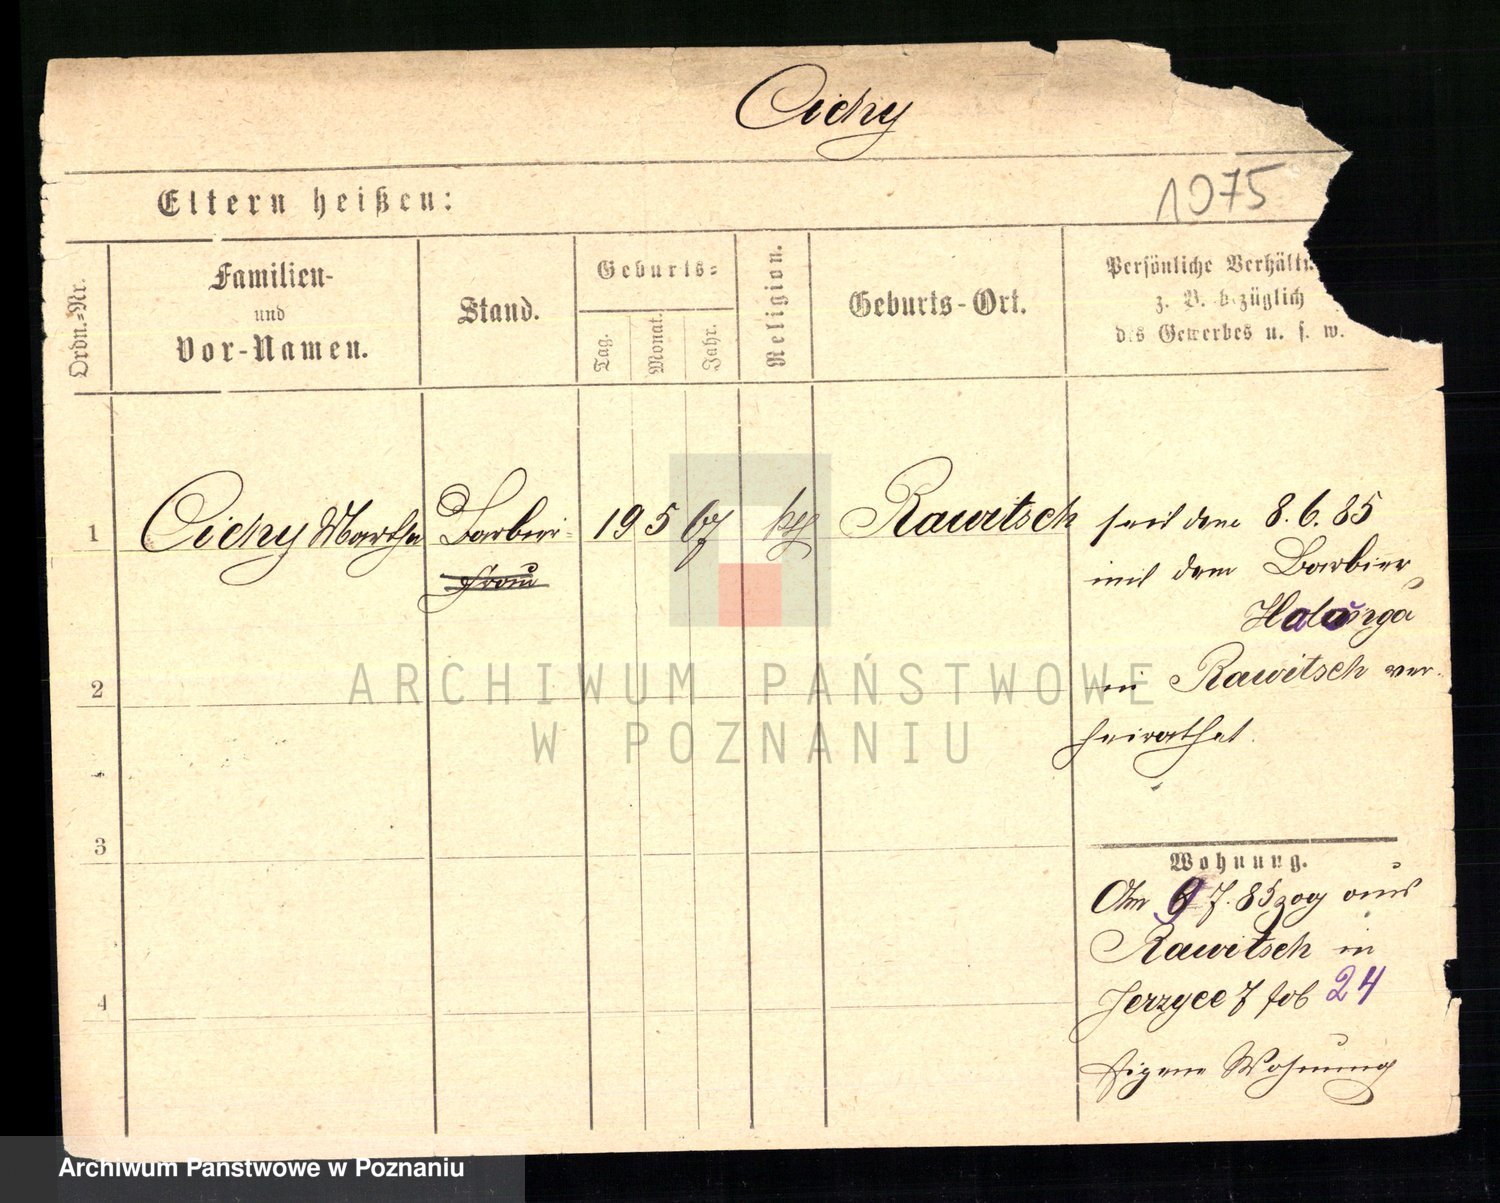 Cichy
1075
Eltern heißen:
Ordn.-Nr.
Familien-
und
Vor-Namen.
Stand.
Geburts-
Tag.
Monat.
Jahr.
Religion.
Geburts-Ort.
Persönliche Verhält
z. B. bezüglich
des Gewerbes u. s. w.
1
Cichy Martha
Barbier-
frau
19 5 67
Rawitsch
seit dem 8.6.85
mit dem Barbier
in Rawitsch ver-
heirathet.
2
3
4
Wohnung.
Am 7. 85 zog aus
Rawitsch in
Jerzyce 7 sob 24
Eigene Wohnung
ARCHIWUM PAŃSTWOWE
W POZNANIU
Archiwum Państwowe w Poznaniu